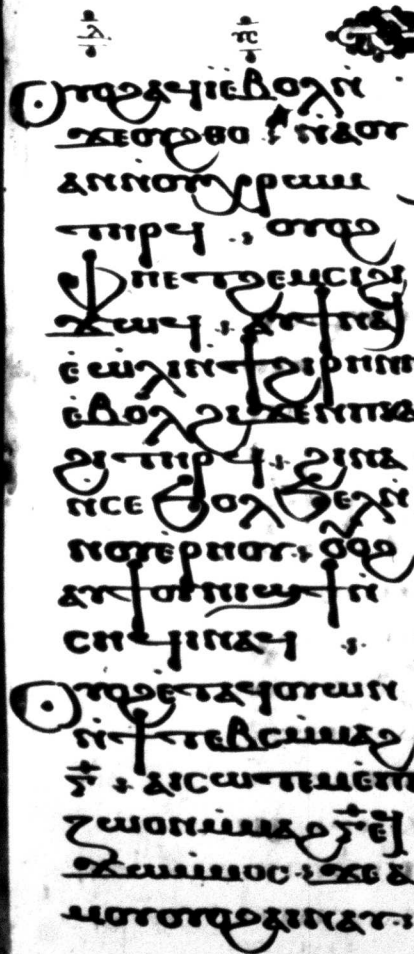 ⲗ
Ⲟⲩⲟϩⲁϥⲓⲉⲃⲟⲗⲛ̀
ϫⲉⲟⲩϩⲑⲟ ⁝ ⲛ̀ⲁⲟⲩ
ⲁⲛⲛⲟⲩⲭⲣⲱⲙ
ⲧⲏⲣϥ ⁝ ⲟⲩⲟϩ
ⲫⲏⲉⲧϩⲉⲙⲥⲓϩⲓ
ϫⲱϥ ⁝ ⲁⲩϯⲛⲁϥ
ⲉ̀ⲱⲗⲓⲛϯϩⲓⲣⲏⲛⲏ
ⲉ̀ⲃⲟⲗϩⲓϫⲉⲛⲡⲕⲁ
ϩⲓⲧⲏⲣϥ ⁝ ϩⲓⲛⲁ
ⲛⲥⲉϧⲟⲗϧⲉⲗⲛ̀
ⲛⲟⲩⲉⲣⲏⲟⲩ ⁝ ⲟⲩⲟϩ
ⲁⲩϯⲟⲩⲛⲓϣϯⲛ̀
ⲥⲏϥⲓⲛⲁϥ ⁝
Ⲟⲩⲟϩⲉⲧⲁϥⲟⲩⲱⲛ
ⲛ̀ϯⲧⲉⲃⲥⲙⲙⲁϩ
ⲅ̄ ⁝ ⲁⲓⲥⲱⲧⲉⲙⲉⲡⲓ
ⲍⲱⲟⲛⲙⲙⲁϩⲅ̄ⲉϥ
ϫⲱⲙⲙⲟⲥ ⁝ ϫⲉⲁ
ⲙⲟⲩⲟⲩⲟϩⲁⲓⲛⲁⲩ ⁝